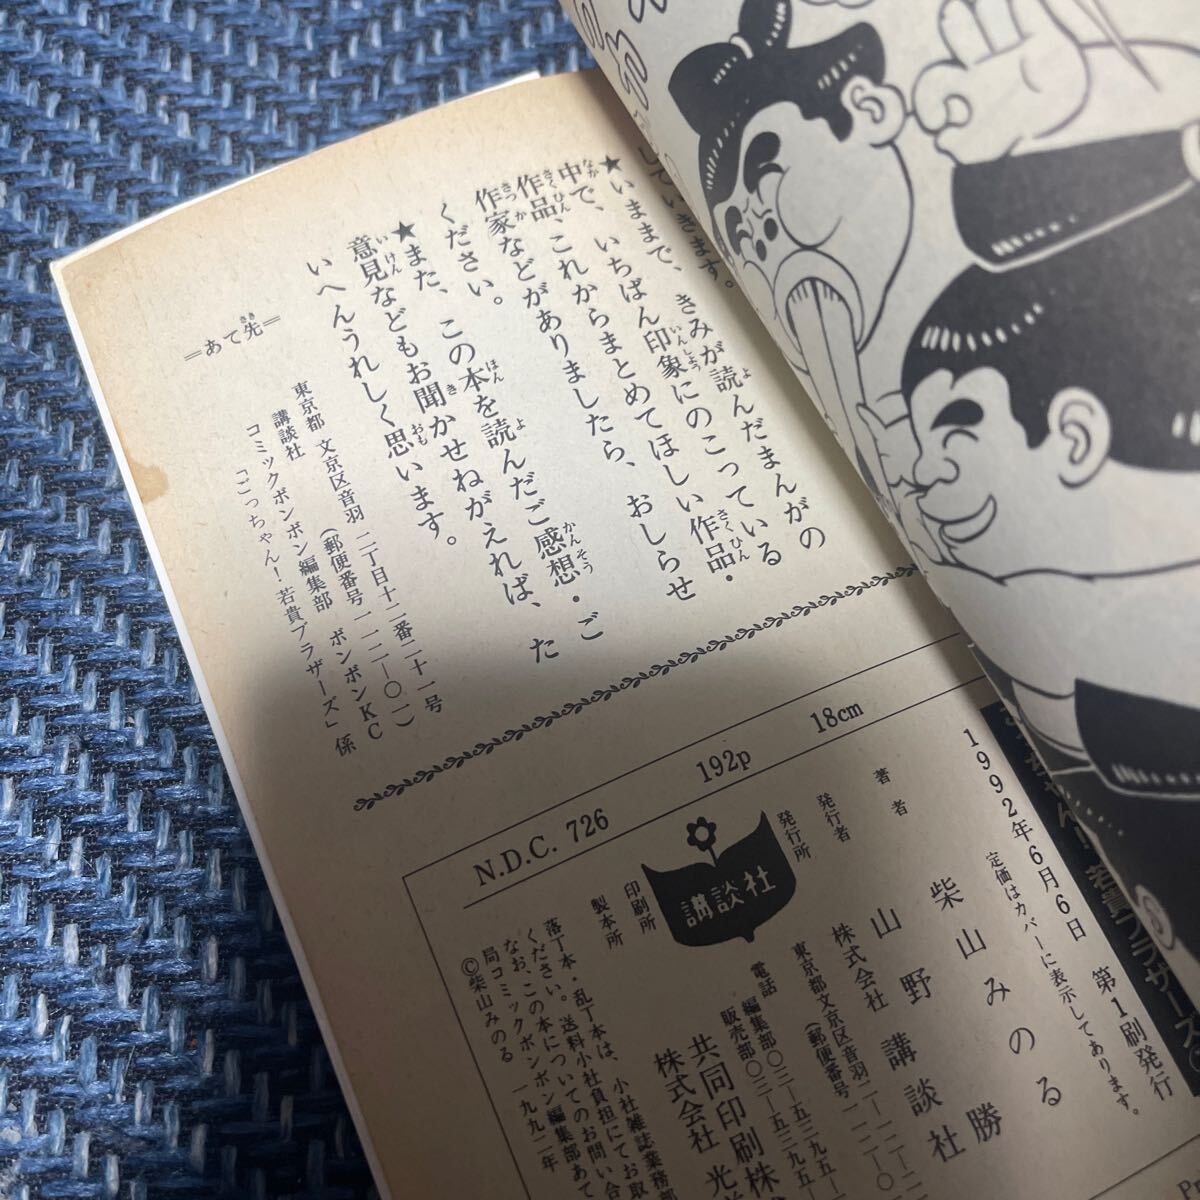 していきます。
★いままで、きみが読んだまんがの
中で、いちばん印象にのこっている
作品、これからまとめてほしい作品・
作家などがありましたら、おしらせ
ください。
★また、この本を読んだご感想・ご
意見などもお聞かせねがえれば、た
いへんうれしく思います。
＝あて先＝
東京都 文京区音羽 二丁目十二番二十一号
講談社 （郵便番号一一二―〇一）
コミックボンボン編集部 ボンボンKC
「ごっちゃん！若貴ブラザーズ」係
N.D.C. 726
192p
18cm
若貴ブラザーズ
1992年6月6日 第1刷発行
定価はカバーに表示してあります。
著者 柴山みのる
発行者 山野 勝
発行所 株式会社 講談社
東京都文京区音羽二―一二―二
（郵便番号一一二―〇
電話 編集部〇三―五三九五―
販売部〇三―五三九五―
講談社
印刷所 共同印刷株
製本所 株式会社 光
落丁本・乱丁本は、小社雑誌業務部
ください。送料小社負担にてお取
なお、この本についてのお問い合
局コミックボンボン編集部あて
©柴山みのる 一九九二年